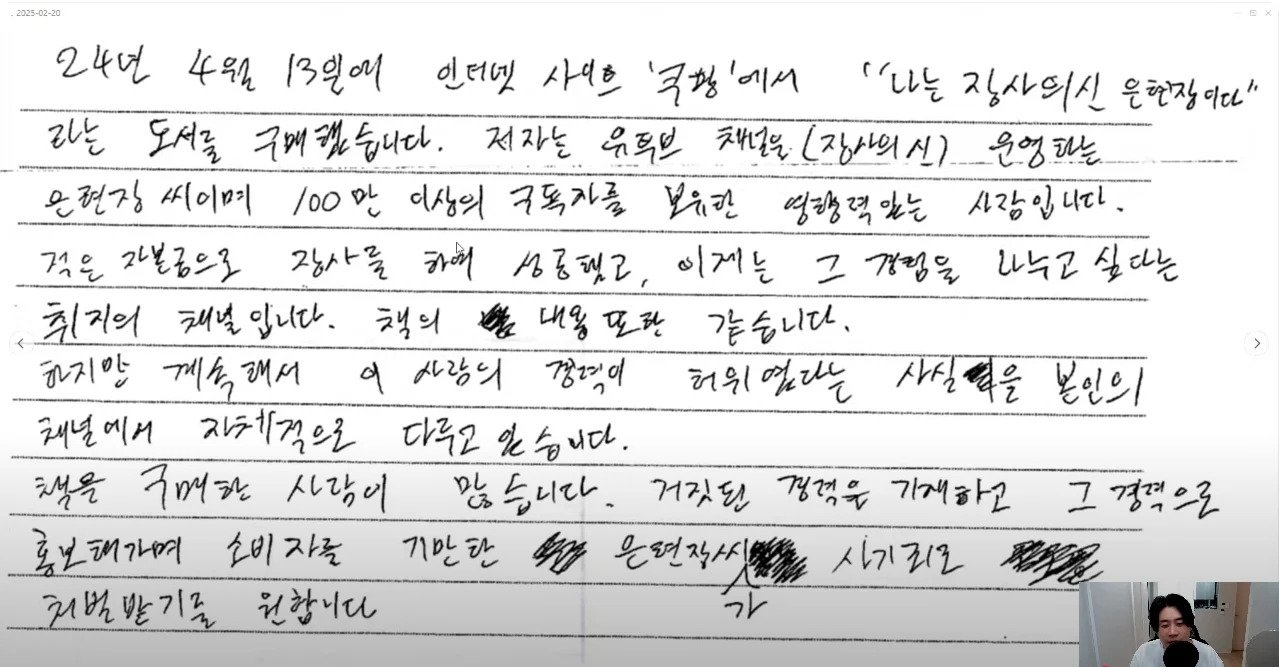 . 2025-02-20
24년 4월 13일에 인터넷 사이트 '쿠팡'에서 "나는 장사의신 은현장이다"
라는 도서를 구매했습니다. 저자는 유튜브 채널을 (장사의 신) 운영하는
은현장 씨이며 100만 이상의 구독자를 보유한 영향력있는 사람입니다.
적은 자본금으로 장사를 하여 성공했고, 이제는 그 경험을 나누고 싶다는
취지의 채널입니다. 책의 내용 또한 같습니다.
하지만 계속해서 이 사람의 경력이 허위였다는 사실을 본인의
채널에서 자체적으로 다루고 있습니다.
책을 구매한 사람이 많습니다. 거짓된 경력을 기재하고 그 경력으로
홍보해가며 소비자를 기만한 은현장씨가 사기죄로
처벌받기를 원합니다